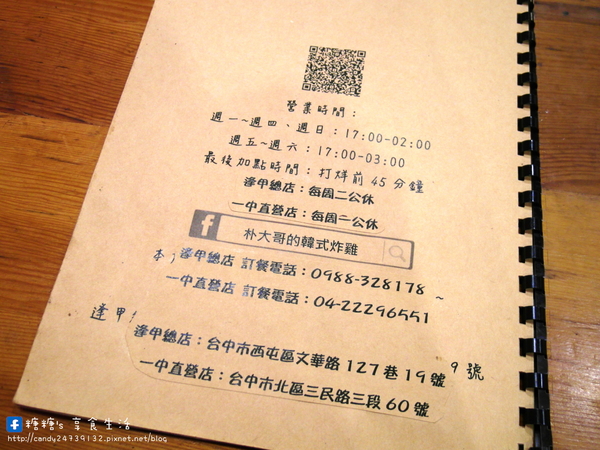 營業時間：
週一~週四、週日：17:00-02:00
週五~週六：17:00-03:00
最後加點時間：打烊前 45 分鐘
逢甲總店：每周二公休
一中直營店：每周一公休
f 朴大哥的韓式炸雞
本 逢甲總店 訂餐電話：0988-328178 ~
一中直營店 訂餐電話：04-22296551
逢甲
逢甲總店：台中市西屯區文華路 127 巷 19 號 9 號
一中直營店：台中市北區三民路三段 60 號
f 糖糖's 享食生活
http://candy24739132.pixnet.net/blog